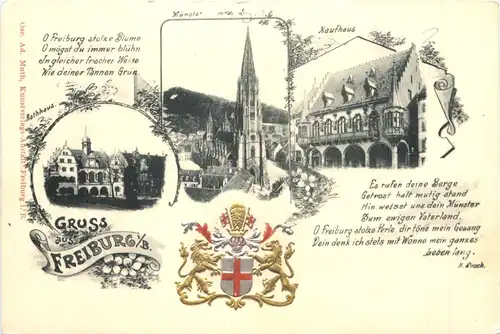 Münster
Kaufhaus
O Freiburg stolze Blume
O mögst du immer blühn
In gleicher frischer Weise
Wie deiner Tannen Grün
Rathhaus
GRUSS
aus
FREIBURG i/B.
Es rufen deine Berge
Getrost halt mutig stand
Hin weisst uns dein Münster
Zum ewigen Vaterland.
O Freiburg stolze Perle dir töne mein Gesang
Dein denk ich stets mit Wonne mein ganzes
Leben lang.
Osc. Ad. Muth, Kunstverlagsanstalt Freiburg i. B.